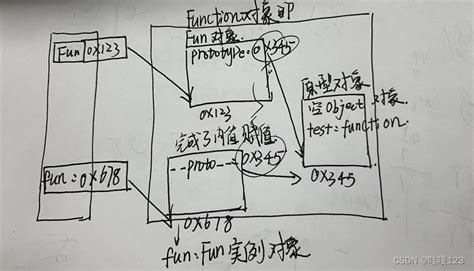 Function对象即
Fun 0X123
Fun对象
prototype:0X345
0X123
原型对象
空Object对象
test=function
0X345
完成了内值赋值
--proto--
0X345
fun:0X678
0X678
fun:Fun实例对象